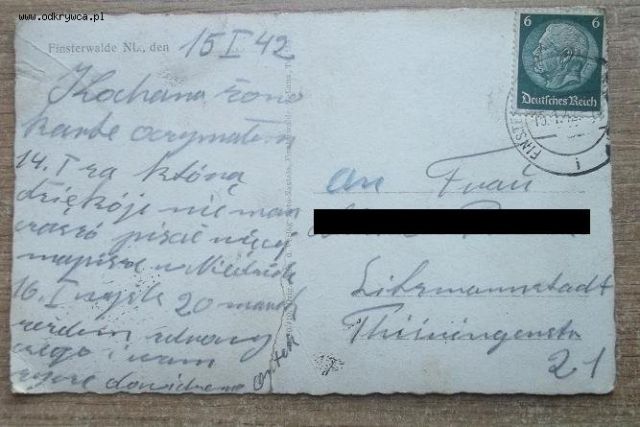 www.odkrywca.pl
Finsterwalde NL., den 15 I 42
Kochana żono
karte otrzymałem
14. I za którą
dziękóje nie mam
czasó pisać więcej
napisze w Niedziele
16. I wysle 20 marek
jestem zdrowy
czego i wam
życzę dowidzenia
6 6
Deutsches Reich
an Frau
Litzmannstadt
Thüringenstr
21